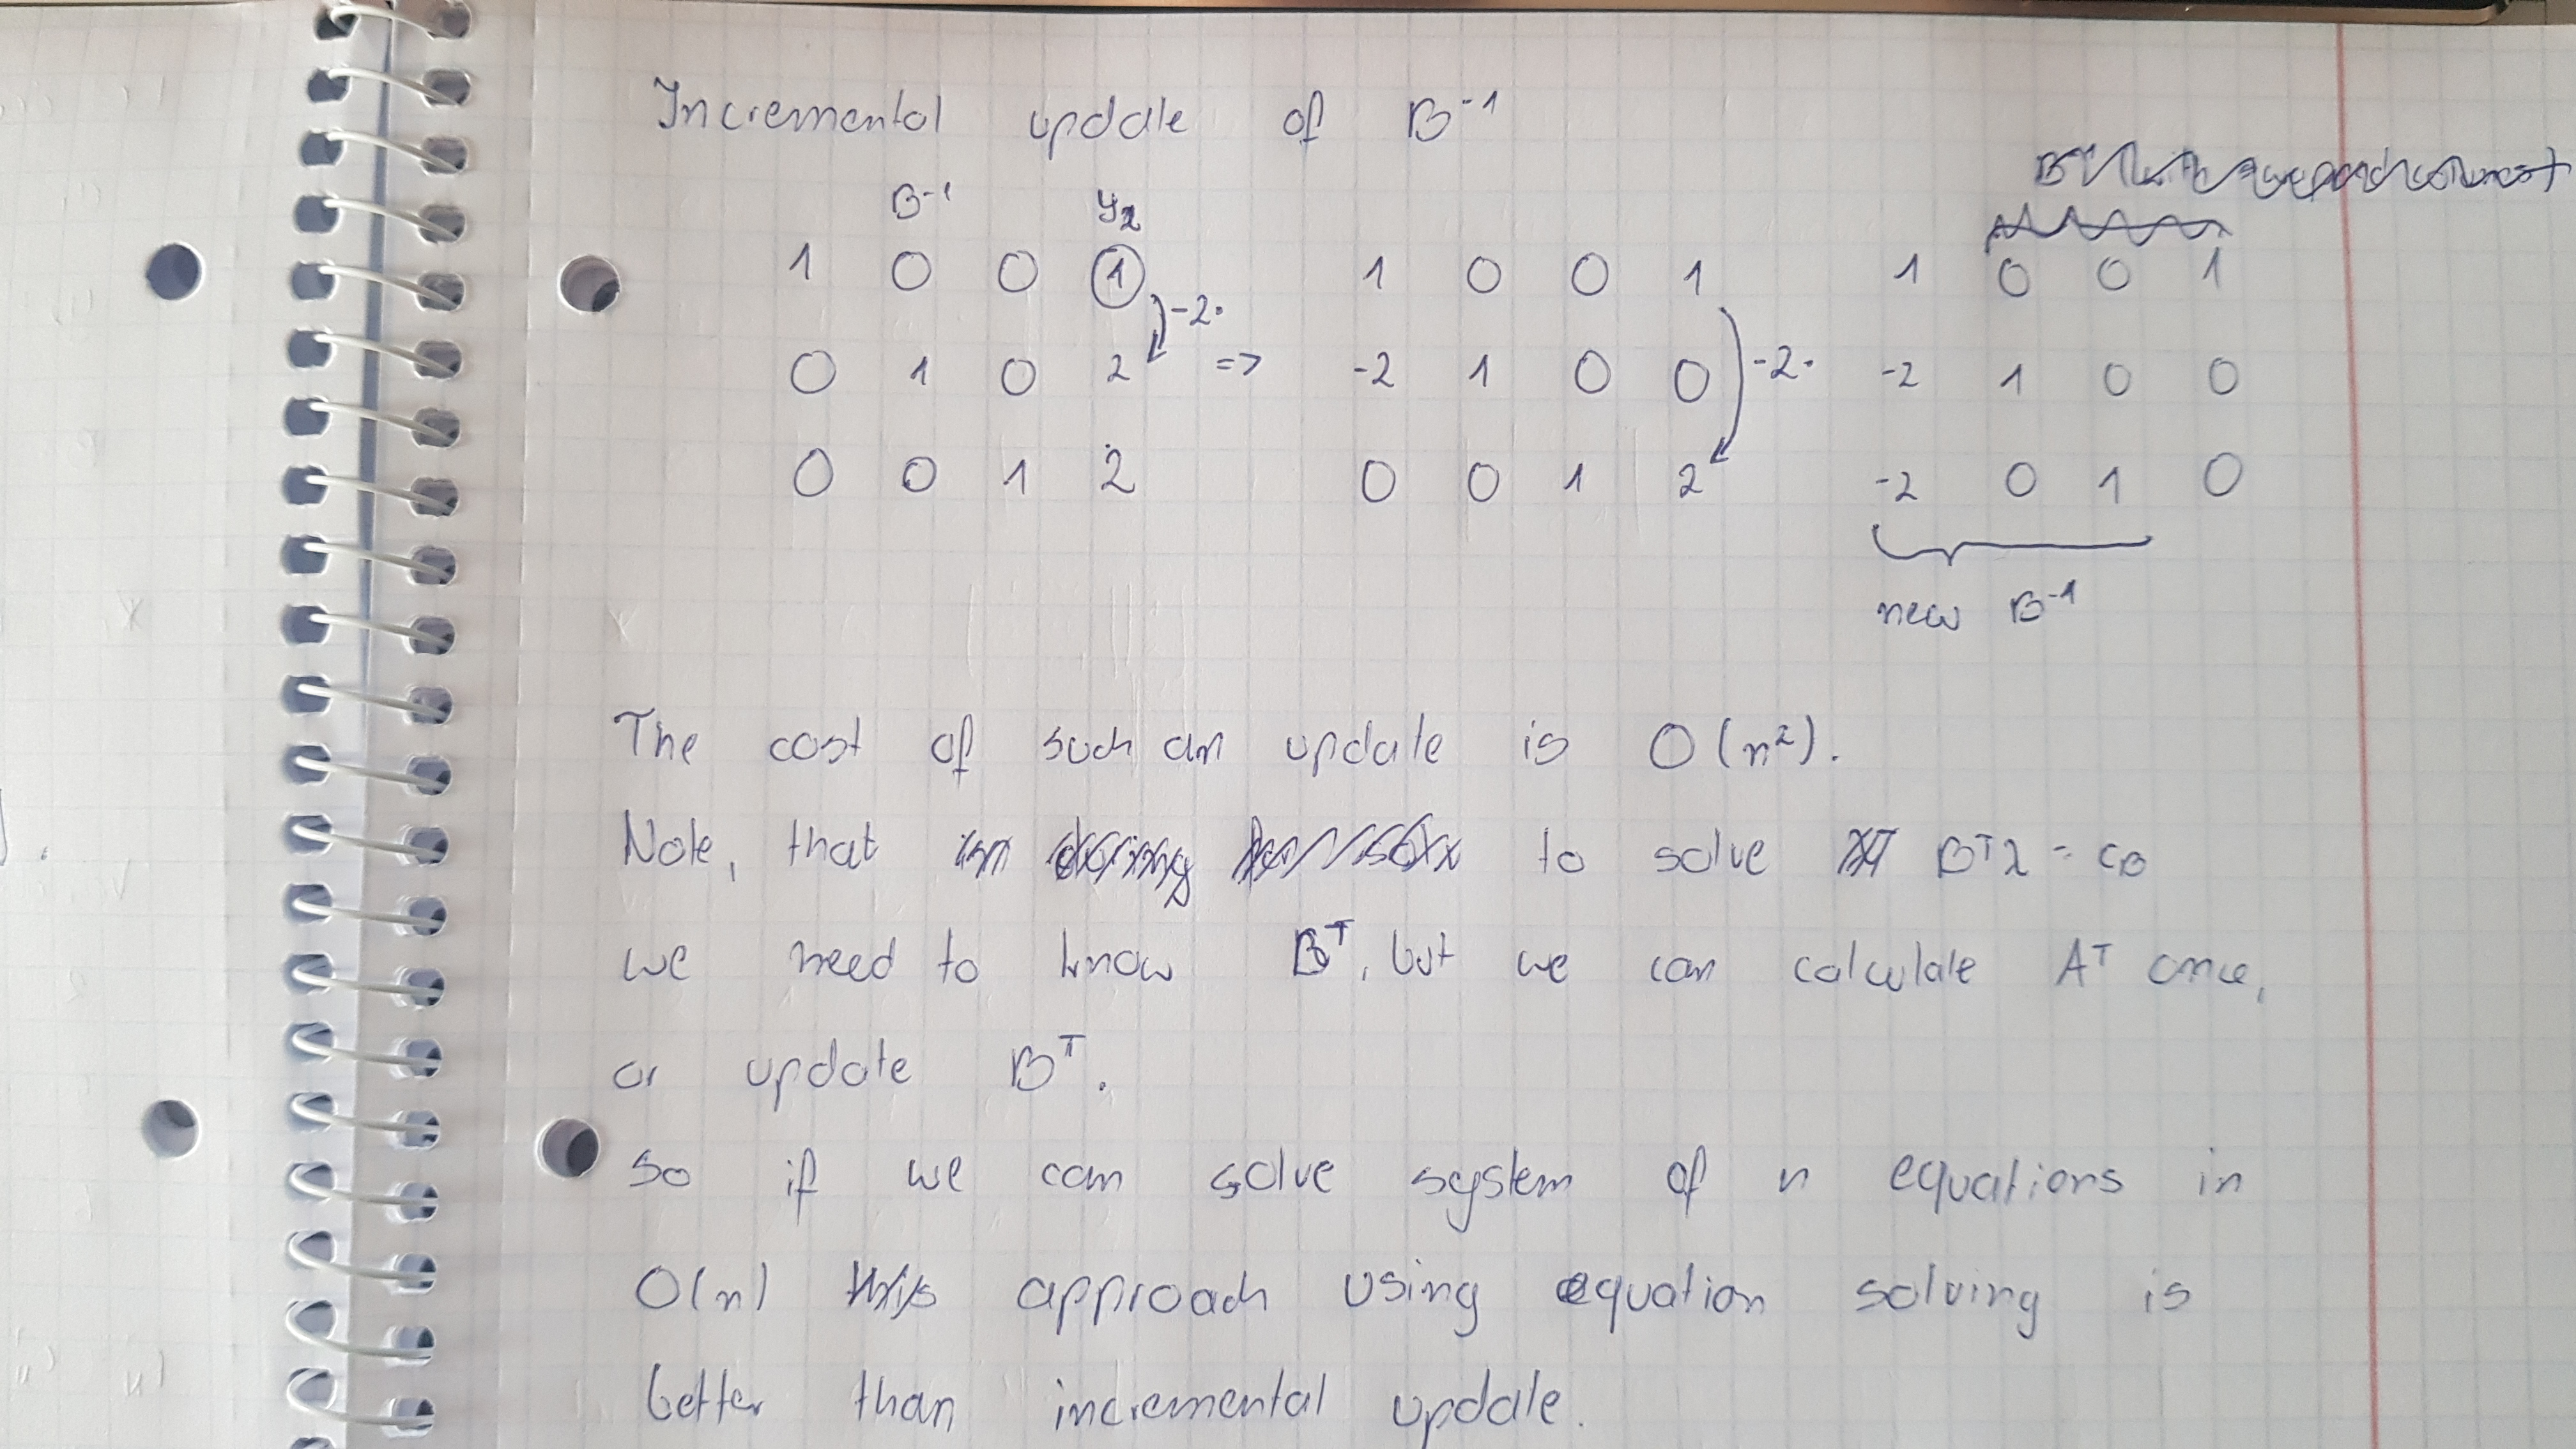 Incremental update of B⁻¹
B⁻¹ y₂
1 0 0 1 -2· 1 0 0 1 1 0 0 1
0 1 0 2 => -2 1 0 0 -2· -2 1 0 0
0 0 1 2 0 0 1 2 -2 0 1 0
new B⁻¹
The cost of such an update is O(n²).
Note, that to solve Bᵀλ = c_B
we need to know Bᵀ, but we can calculate Aᵀ once,
or update Bᵀ.
So if we can solve system of n equations in
O(n) this approach using equation solving is
better than incremental update.